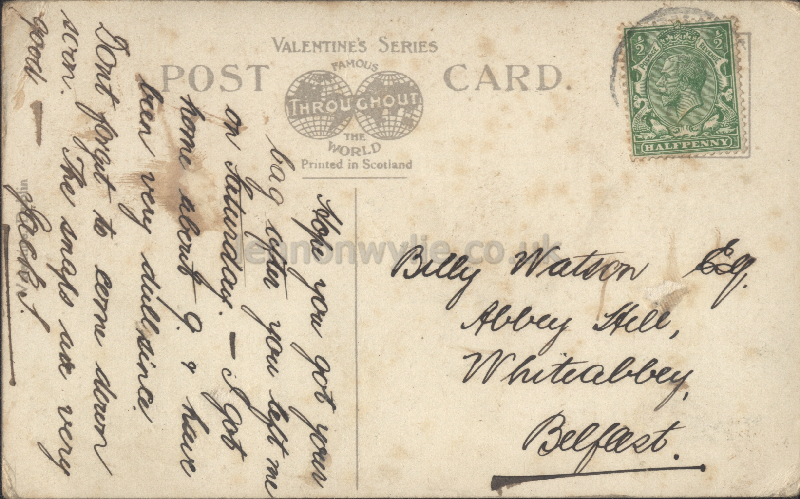 VALENTINE'S SERIES
POST CARD.
FAMOUS
THROUGHOUT
THE
WORLD
Printed in Scotland
1/2 1/2
HALFPENNY
Hope you got your
bag after you left me
on Saturday. — I got
home about 9. & have
been very dull since
Dont forget to come down
soon. The snaps are very
good —
lennonwylie.co.uk
Billy Watson Esq.
Abbey Hill,
Whiteabbey,
Belfast.